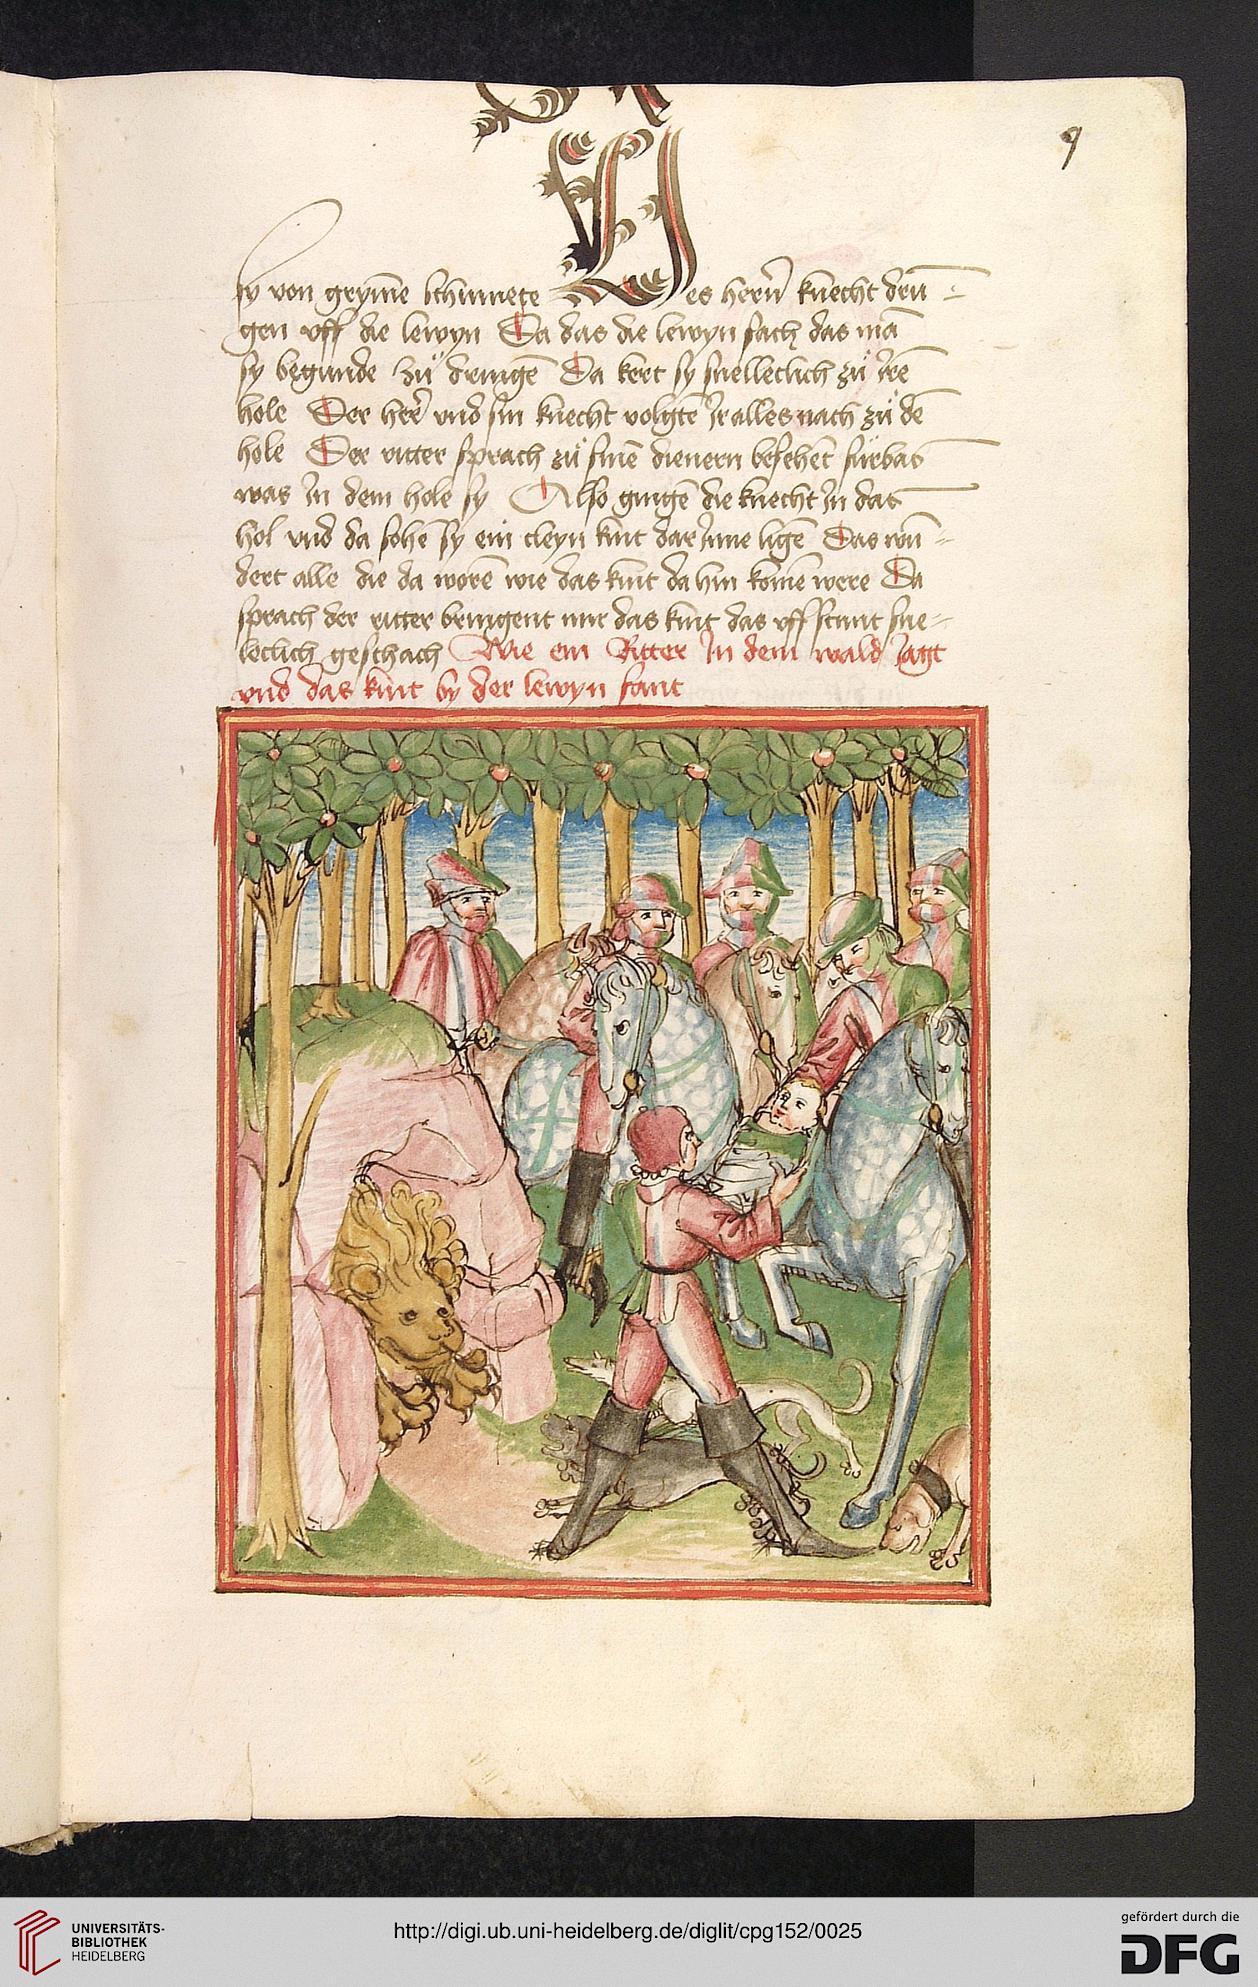 9
sy von grym̄e schiumete Des herrn̄ knecht drū-
gen vff die lewyn Da das die lewyn sach das mā
sy begunde zů dringē Da kert sy snelleclich zů Jrē
hole Der her̄ vnd sin knecht volgtē Jr alles nach zů dē
hole Der ritter sprach zů sinē dienern besehēt fürbas
was Jn dem hole sy Also gingē die knecht Jn das
hol vnd da sohē sy ein cleyn kint dar Jnne ligē Das wū-
dert alle die da worē wie das kint da hin komē were Da
sprach der ritter bringent mir das kint das vff stunt sne-
leclich geschach Wie ein Ritter Jn dem wald Jagt
vnd das kint by der lewyn fant
UNIVERSITÄTS-
BIBLIOTHEK
HEIDELBERG
http://digi.ub.uni-heidelberg.de/diglit/cpg152/0025
gefördert durch die
DFG